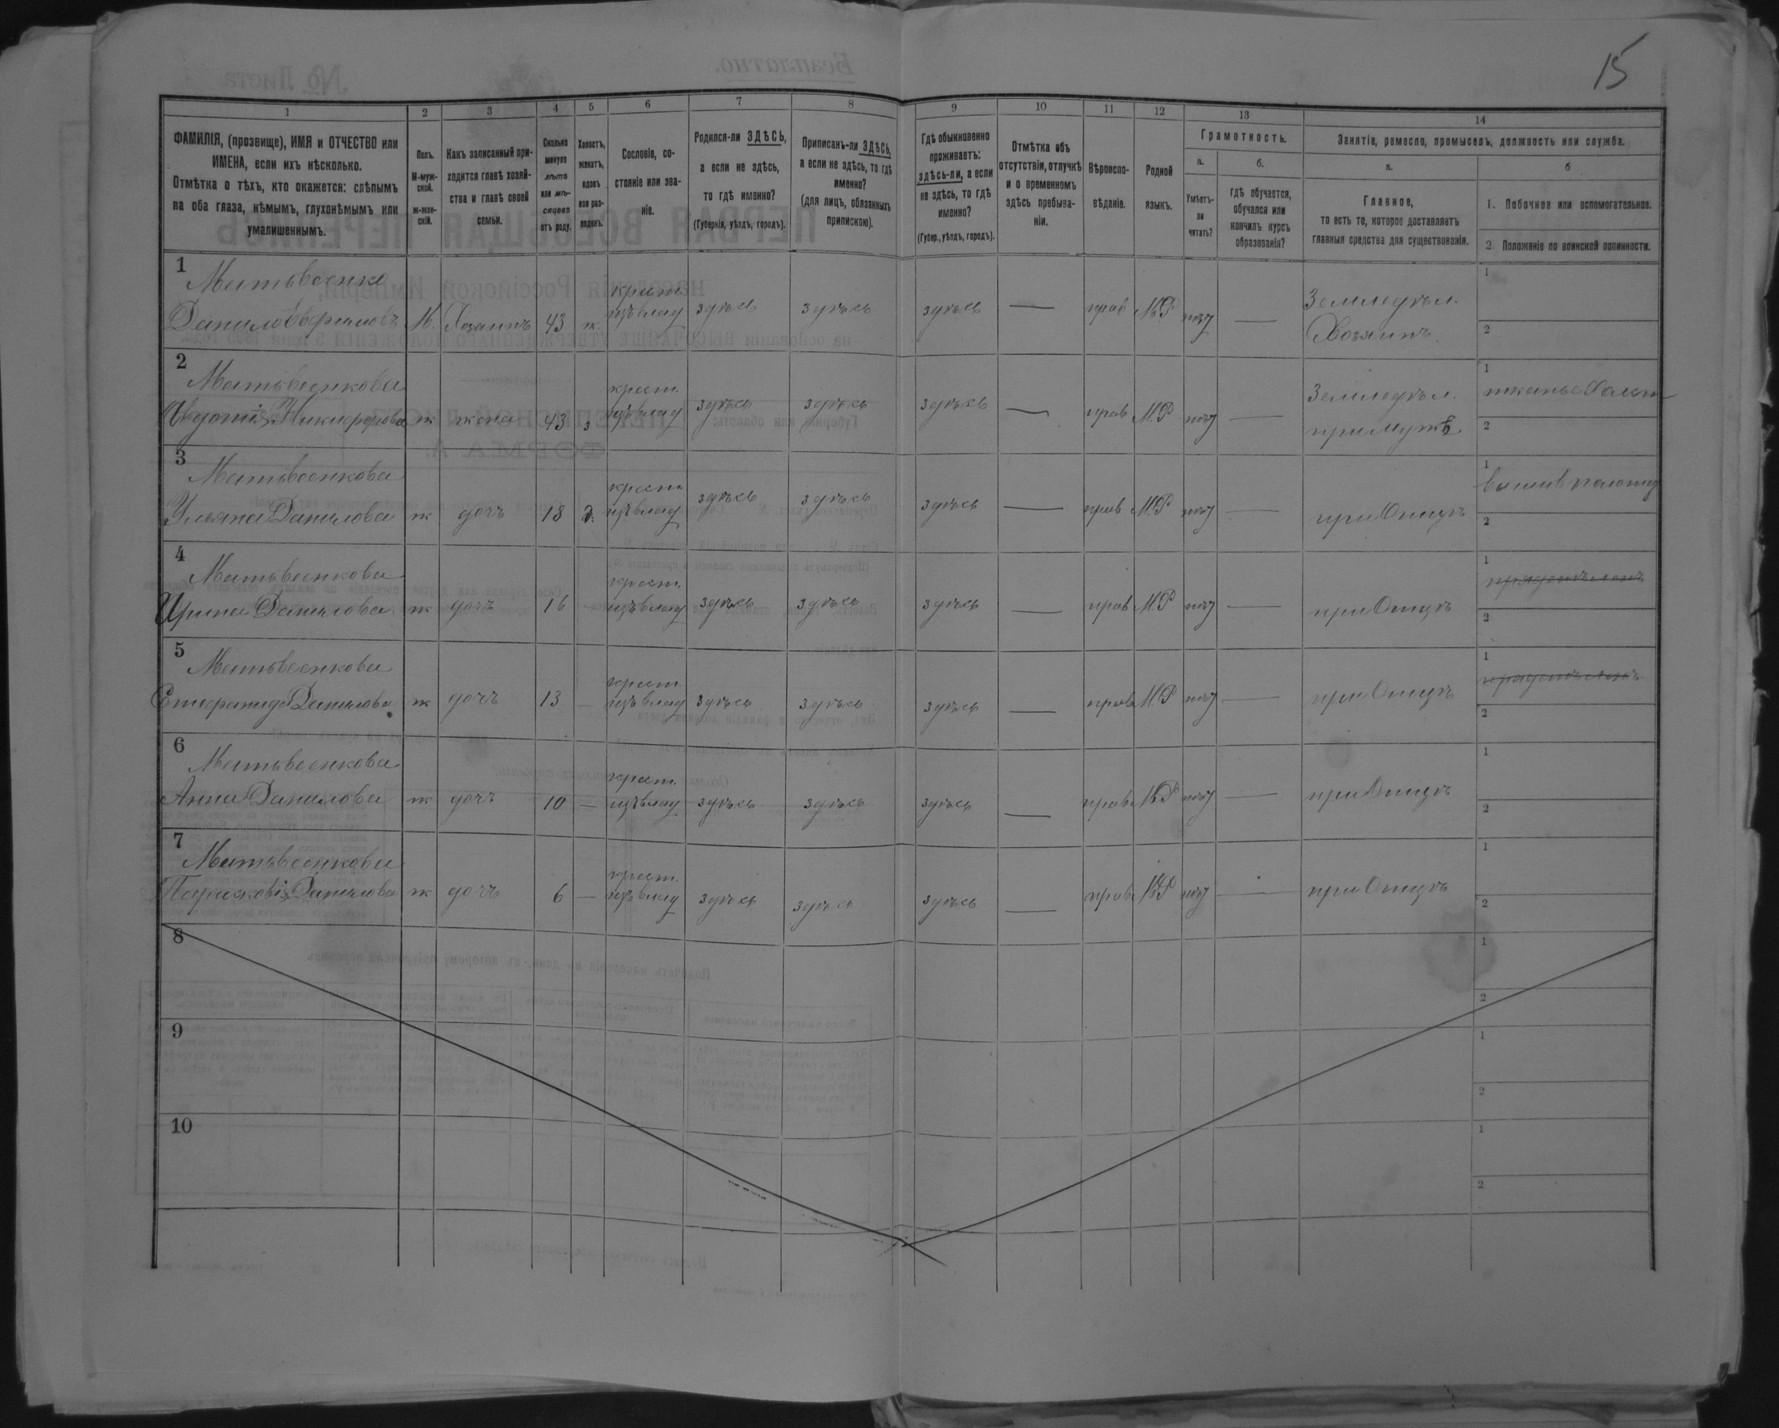 15
1 2 3 4 5 6 7 8 9 10 11 12 13 14
ФАМИЛІЯ, (прозвище), ИМЯ и ОТЧЕСТВО или
ИМЕНА, если ихъ нѣсколько.
Отмѣтка о тѣхъ, кто окажется: слѣпымъ
на оба глаза, нѣмымъ, глухонѣмымъ или
умалишеннымъ.
Полъ.
М-муж-
ской.
ж-жен-
скій.
Какъ записанный при-
ходится главѣ хозяй-
ства и главѣ своей
семьи.
Сколько
минуло
лѣтъ
или мѣ-
сяцевъ
отъ роду.
Холостъ,
женатъ,
вдовъ
или раз-
веденъ.
Сословіе, со-
стояніе или зва-
ніе.
Родился-ли ЗДѢСЬ,
а если не здѣсь,
то гдѣ именно?
(Губернія, уѣздъ, городъ).
Приписанъ-ли ЗДѢСЬ,
а если не здѣсь, то гдѣ
именно?
(для лицъ, обязанныхъ
припискою).
Гдѣ обыкновенно
проживаетъ:
здѣсь-ли, а если
не здѣсь, то гдѣ
именно?
(Губер., уѣздъ, городъ).
Отмѣтка объ
отсутствіи, отлучкѣ
и о временномъ
здѣсь пребыва-
ніи.
Вѣроиспо-
вѣданіе.
Родной
языкъ.
Грамотность.
а.
Умѣетъ-
ли
читать?
б.
гдѣ обучается,
обучался или
кончилъ курсъ
образованія?
Занятія, ремесло, промыселъ, должность или служба.
а.
Главное,
то есть то, которое доставляетъ
главныя средства для существованія.
б
1. Побочное или вспомогательное.
2. Положеніе по воинской повинности.
1
Матьвеенко
Данило М. Хозяинъ 43 ж. крест. здѣсь здѣсь здѣсь — прав МР —
Земледѣл.
Хозяинъ.
1
2
2
Матьвеенкова
Никифорова ж жена 43 з крест. здѣсь здѣсь здѣсь — прав МР —
Земледѣл.
при мужѣ
1
2
3
Матьвеенкова
Ульяна Данилова ж дочь 18 д. крест здѣсь здѣсь здѣсь — прав МР —
при Отцѣ
1
2
4
Матьвеенкова
Ирина Данилова ж дочь 16 — крест. здѣсь здѣсь здѣсь — прав МР —
при Отцѣ
1
2
5
Матьвеенкова
Данилова ж дочь 13 — крест. здѣсь здѣсь здѣсь — прав МР —
при Отцѣ
1
2
6
Матьвеенкова
Анна Данилова ж дочь 10 — крест. здѣсь здѣсь здѣсь — прав МР —
при Отцѣ
1
2
7
Матьвеенкова
Данилова ж дочь 6 — крест. здѣсь здѣсь здѣсь — прав МР —
при Отцѣ
1
2
8
1
2
9
1
2
10
1
2